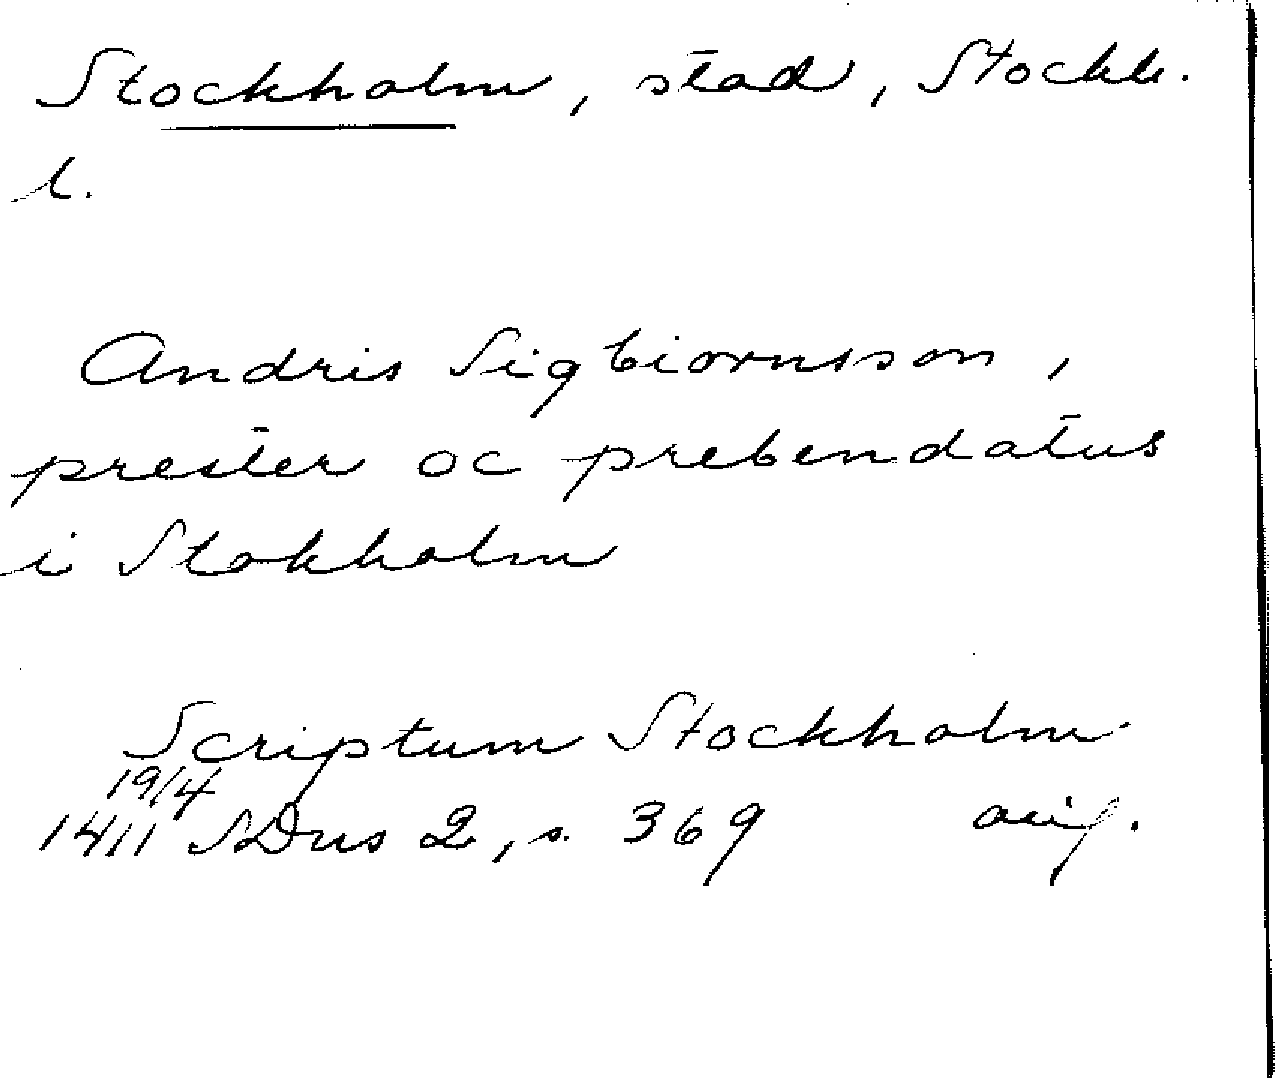 Stockholm, stad, Stockh.
l.
Andris Sigbiornsson,
prester oc prebendatus
i Stokholm
Scriptum Stockholm
19/4
1411 SDns 2, s. 369 avf.